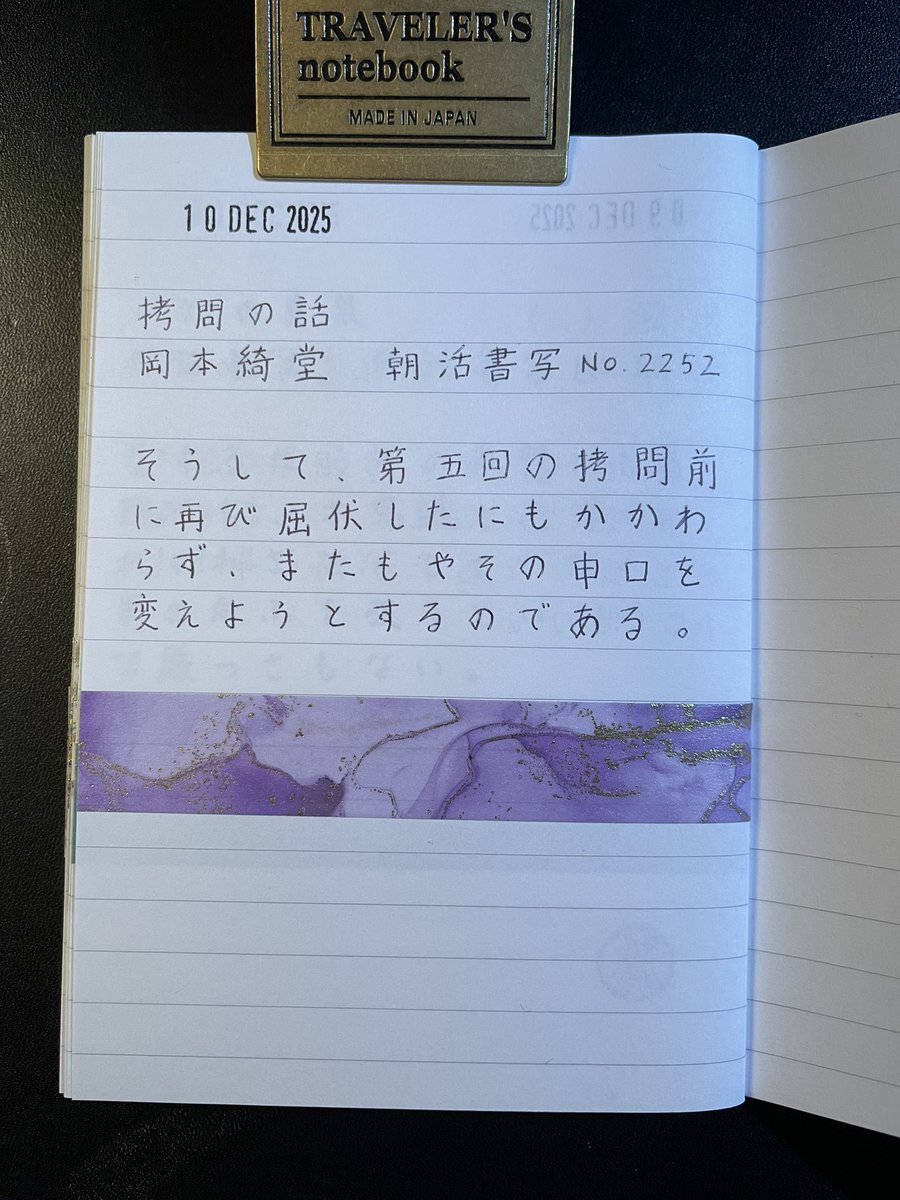 TRAVELER'S
notebook
MADE IN JAPAN
10 DEC 2025
09 DEC 2025
拷問の話
岡本綺堂　朝活書写 No.2252
そうして、第五回の拷問前
に再び屈伏したにもかかわ
らず、またもやその申口を
変えようとするのである。